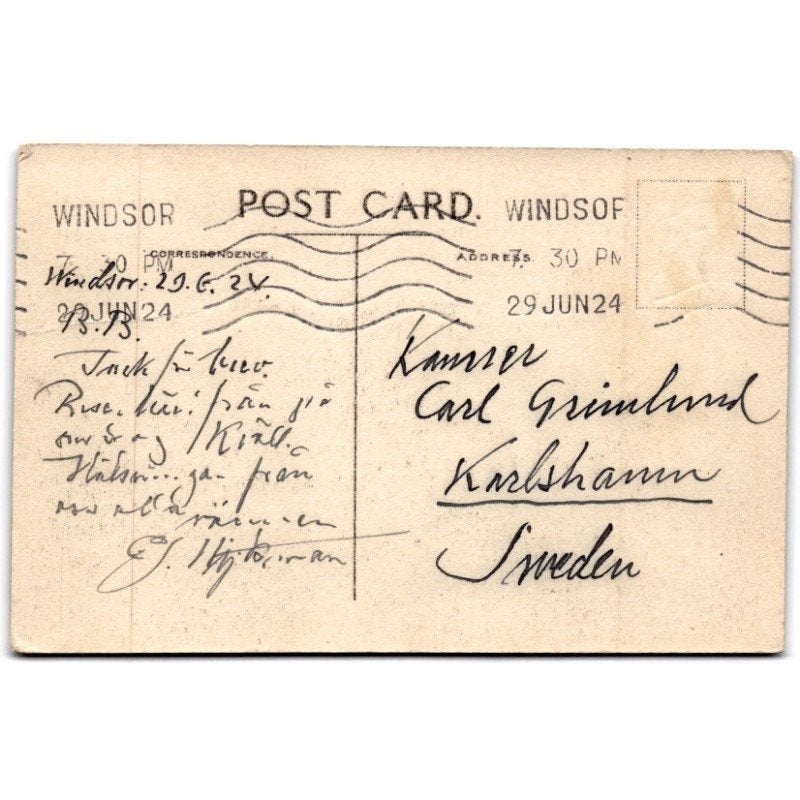 POST CARD.
WINDSOR
7. 30 PM
29 JUN 24
WINDSOR
7. 30 PM
29 JUN 24
CORRESPONDENCE.
ADDRESS
Windsor. 29.6.24.
B.B.
Tack för brev.
från
i kväll.
Hälsningar från
oss alla
vännen
Carl Grimlund
Karlshamn
Sweden